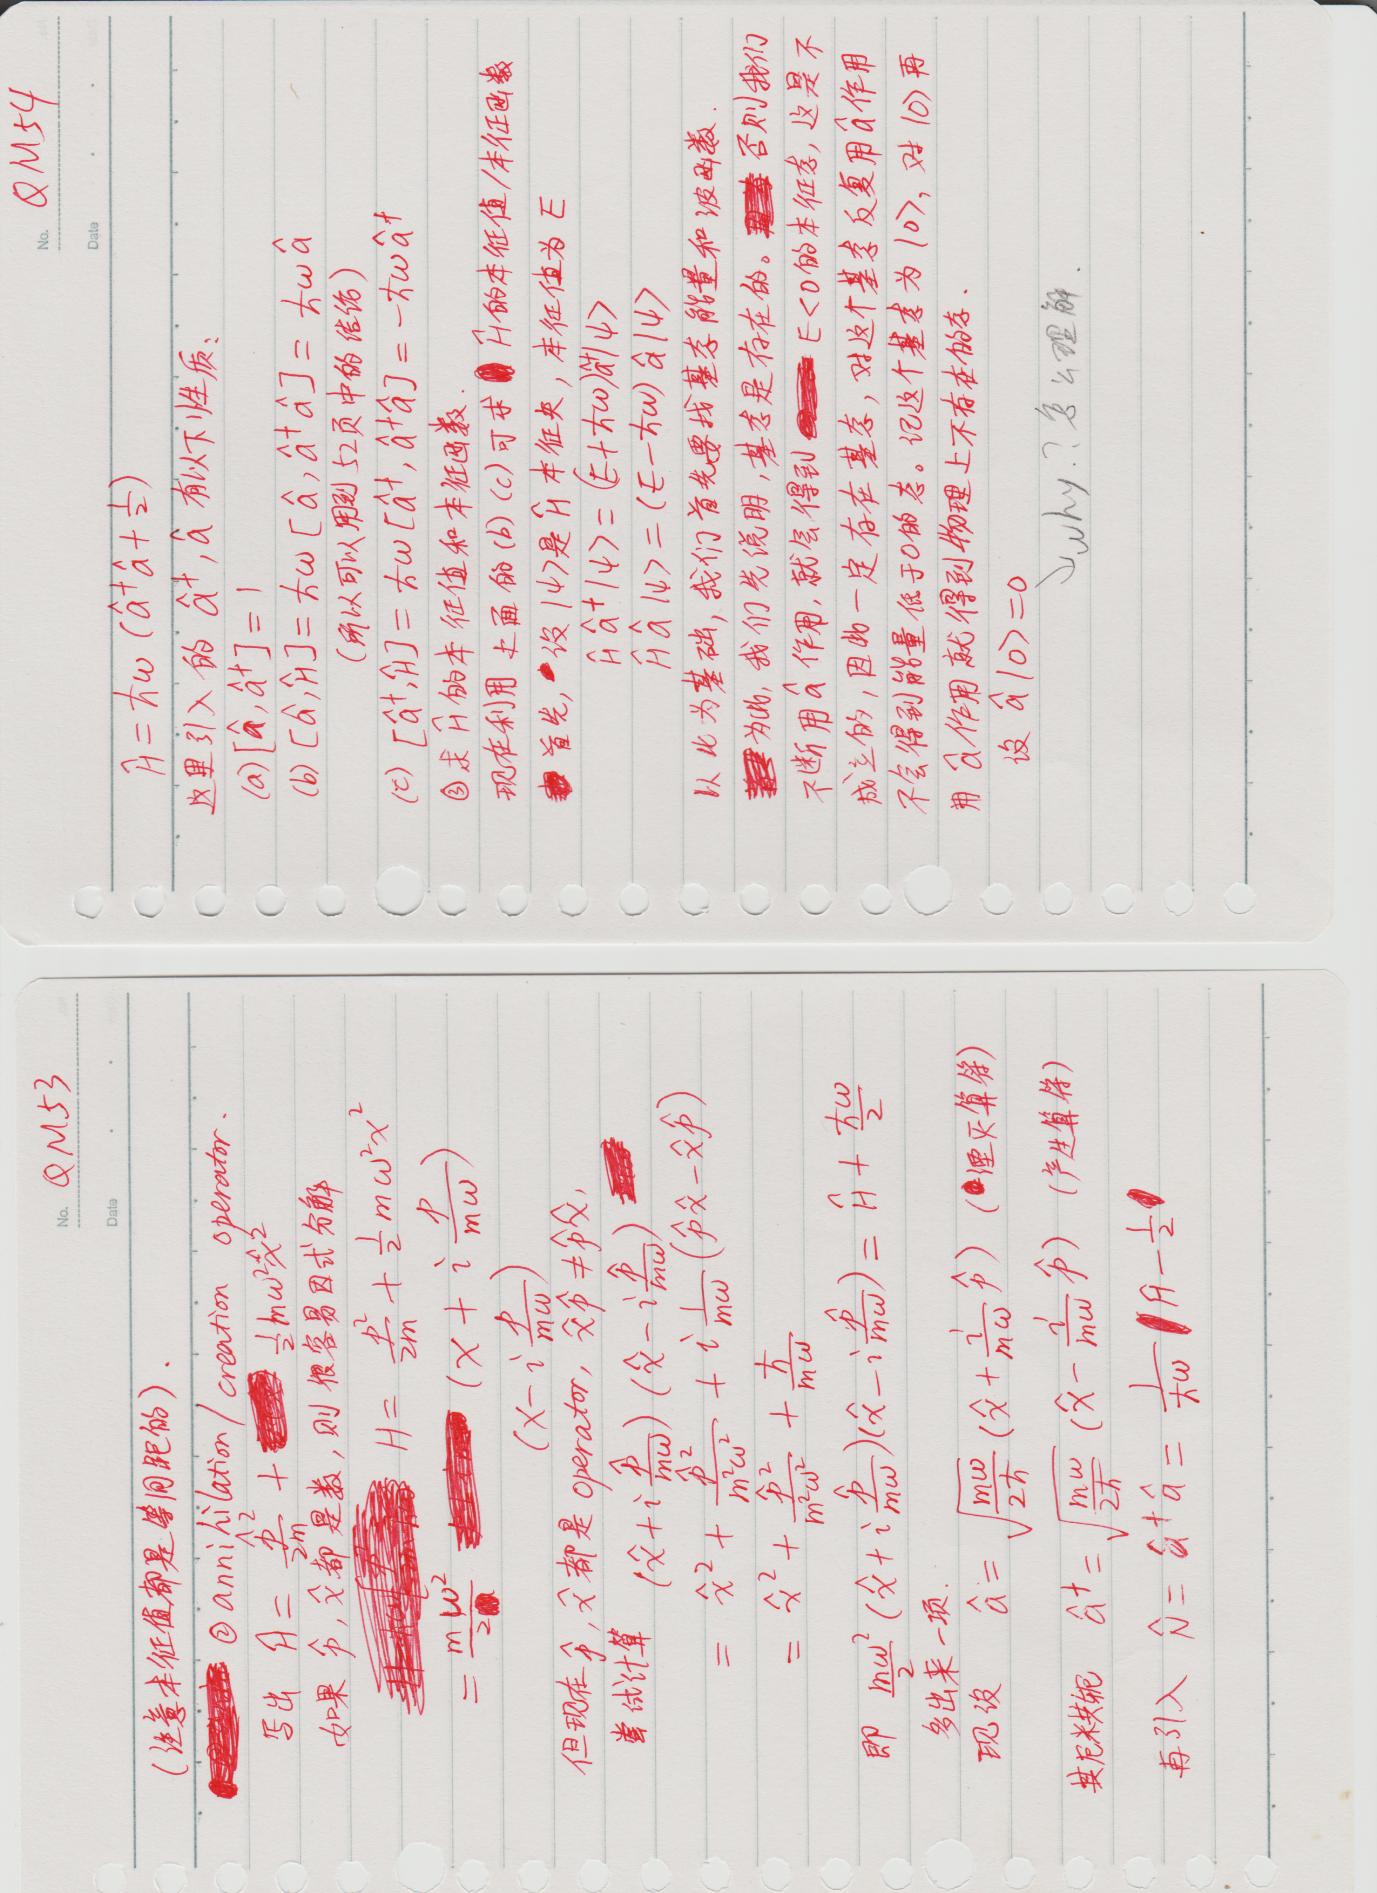 No. QM53
Date
(注意本征值都是等间距的).
② annihilation/creation operator.
写出 Ĥ = p̂²/2m + ½mω²x̂²
如果 p̂, x̂ 都是数, 则很容易因式分解
H = p²/2m + ½mω²x²
= mω²/2 (x + i p/mω)
(x - i p/mω)
但现在 p̂, x̂ 都是 operator, x̂p̂ ≠ p̂x̂,
尝试计算 (x̂ + i p̂/mω) (x̂ - i p̂/mω)
= x̂² + p̂²/m²ω² + i 1/mω (p̂x̂ - x̂p̂)
= x̂² + p̂²/m²ω² + ħ/mω
即 mω²/2 (x̂ + i p̂/mω)(x̂ - i p̂/mω) = Ĥ + ħω/2
多出来一项.
现设 â = √(mω/2ħ) (x̂ + i/mω p̂) (湮灭算符)
其厄米共轭 â† = √(mω/2ħ) (x̂ - i/mω p̂) (产生算符)
再引入 N̂ = â†â = 1/ħω Ĥ - ½
No. QM54
Date
Ĥ = ħω (â†â + ½)
这里引入的 â†, â 有以下性质:
(a) [â, â†] = 1
(b) [â, Ĥ] = ħω [â, â†â] = ħω â
(所以可以用到52页中的结论)
(c) [â†, Ĥ] = ħω [â†, â†â] = -ħω â†
③ 求 Ĥ 的本征值和本征函数.
现在利用上面的 (b) (c) 可求 Ĥ 的本征值/本征函数
首先, 设 |ψ> 是 Ĥ 本征矢, 本征值为 E
Ĥ â†|ψ> = (E+ħω) â†|ψ>
Ĥ â |ψ> = (E-ħω) â|ψ>
以此为基础, 我们首先要找基态能量和波函数.
为此, 我们先说明, 基态是存在的。否则我们
不断用 â 作用, 就会得到 E<0 的本征态, 这是不
成立的, 因此一定存在基态, 对这个基态反复用 â 作用
不会得到能量低于0的态。记这个基态为 |0>, 对 |0> 再
用 â 作用就得到物理上不存在的态.
设 â|0> = 0
↘ why? 怎么理解.